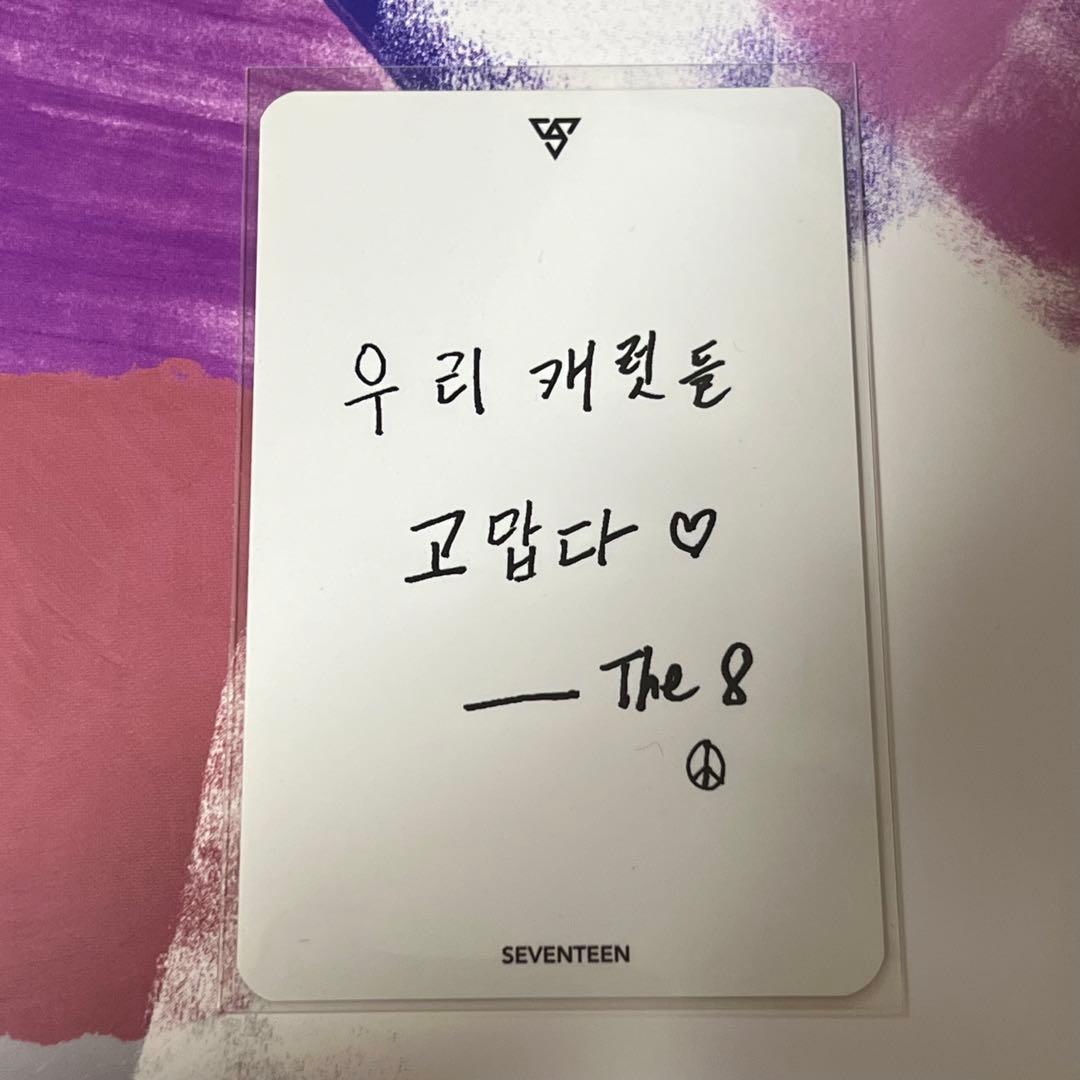 우리 캐럿들
고맙다 ♡
— The 8
SEVENTEEN